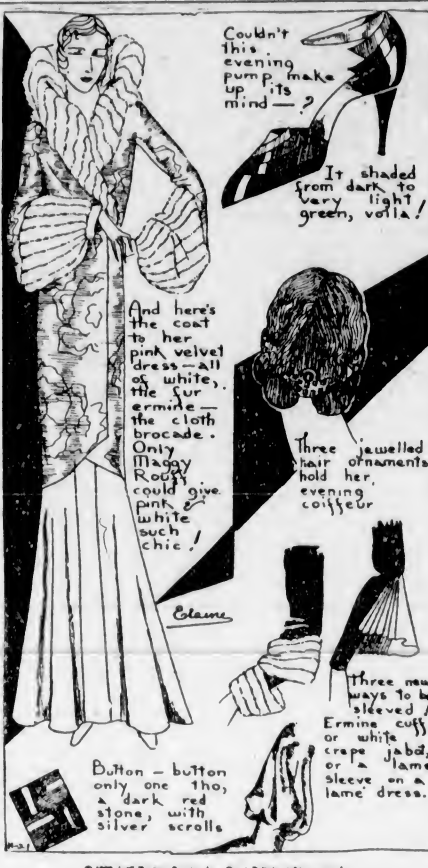 Couldn't
this
evening
pump make
up its
mind — ?
It shaded
from dark to
very light
green, voila!
And here's
the coat
to her
pink velvet
dress — all
of white,
the fur
ermine —
the cloth
brocade.
Only
Maggy
Rouff
could give
pink &
white
such
chic!
Three jewelled
hair ornaments
hold her
evening
coiffeur
Elaine
Three new
ways to be
sleeved!
Ermine cuff
or white
crepe jabot,
or a lame
sleeve on a
lame dress.
Button — button
only one tho,
a dark red
stone, with
silver scrolls